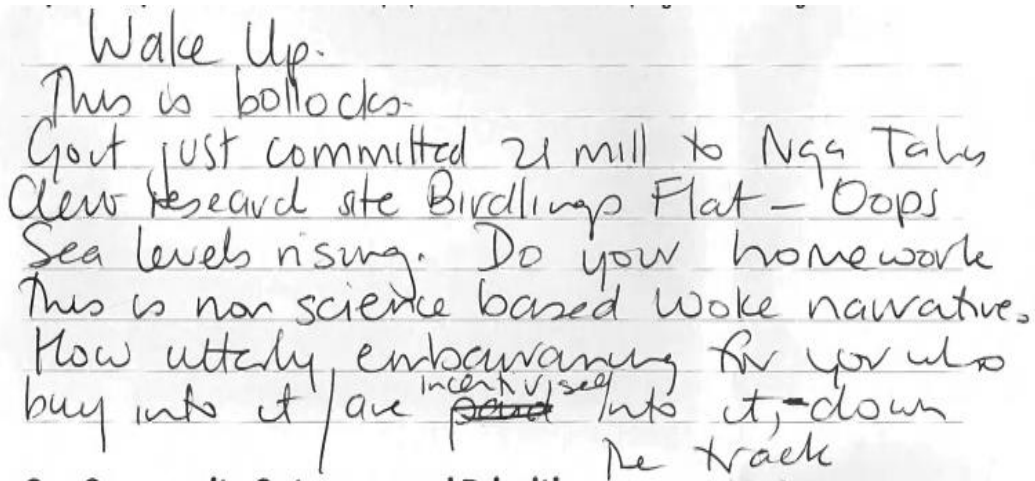 Wake Up.
This is bollocks.
Govt just committed 21 mill to Nga
research site Birdlings Flat - Oops
Sea levels rising. Do your homework
This is non science based woke narrative.
How utterly embarrassing for you who
buy into it / are incentivised into it, down
the track